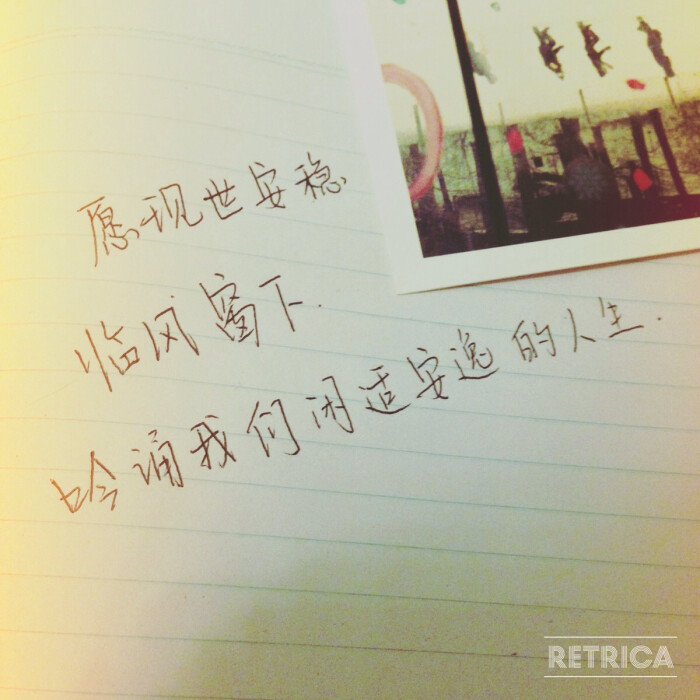 愿现世安稳
临风窗下.
吟诵我们闲适安逸的人生.
RETRICA